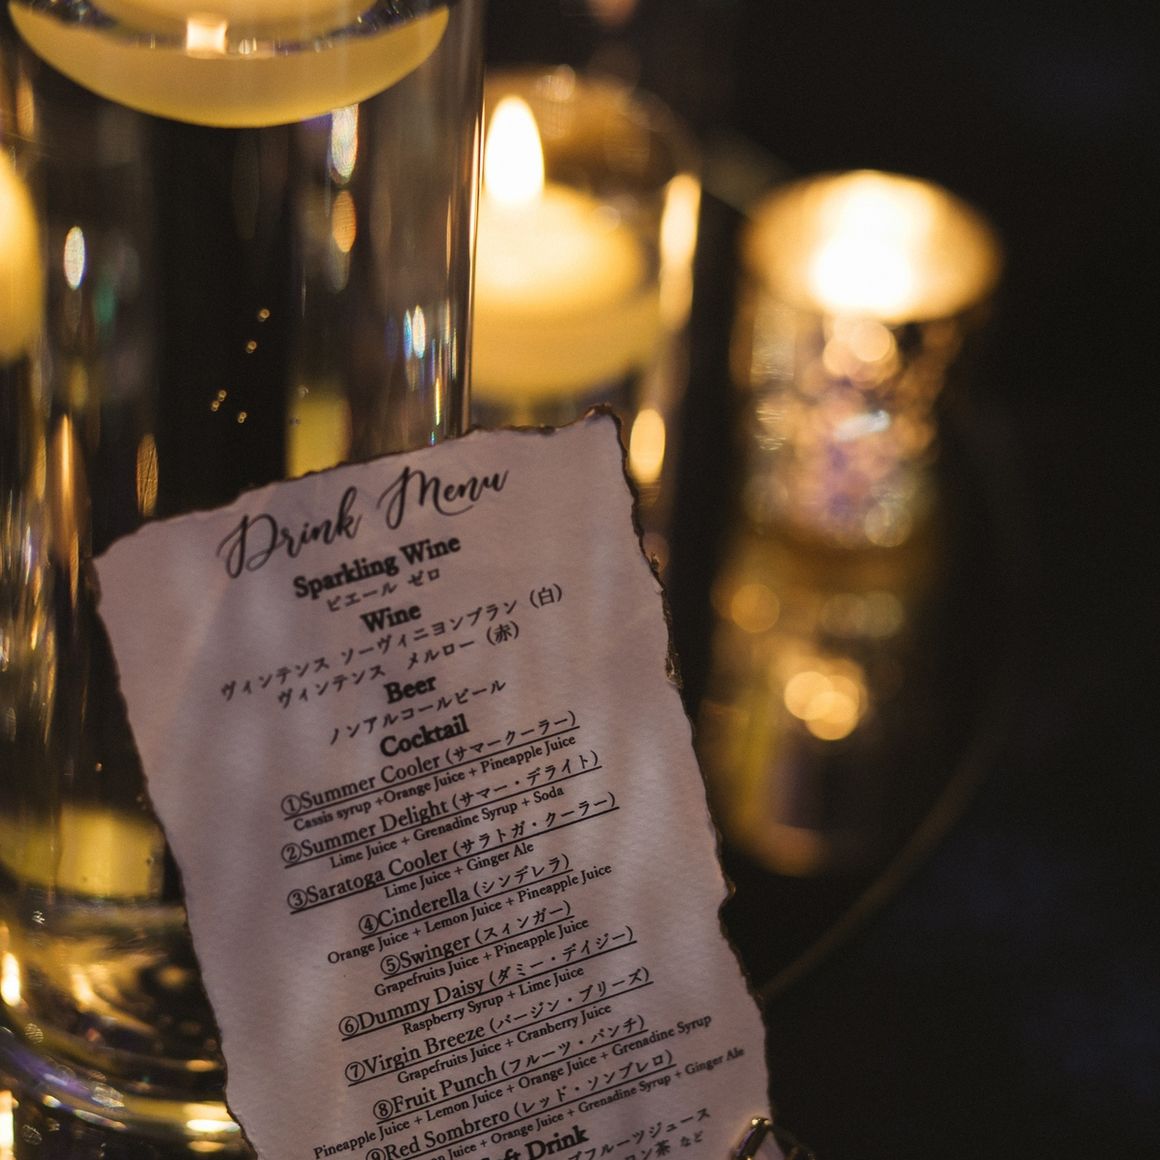 Drink Menu
Sparkling Wine
ピエール ゼロ
Wine
ヴィンテンス ソーヴィニヨンブラン（白）
ヴィンテンス メルロー（赤）
Beer
ノンアルコールビール
Cocktail
①Summer Cooler (サマークーラー)
Cassis syrup +Orange Juice + Pineapple Juice
②Summer Delight (サマー・デライト)
Lime Juice + Grenadine Syrup + Soda
③Saratoga Cooler (サラトガ・クーラー)
Lime Juice + Ginger Ale
④Cinderella (シンデレラ)
Orange Juice + Lemon Juice + Pineapple Juice
⑤Swinger (スィンガー)
Grapefruits Juice + Pineapple Juice
⑥Dummy Daisy (ダミー・デイジー)
Raspberry Syrup + Lime Juice
⑦Virgin Breeze (バージン・ブリーズ)
Grapefruits Juice + Cranberry Juice
⑧Fruit Punch (フルーツ・パンチ)
Pineapple Juice + Lemon Juice + Orange Juice + Grenadine Syrup
⑨Red Sombrero (レッド・ソンブレロ)
Juice + Orange Juice + Grenadine Syrup + Ginger Ale
Drink
フルーツジュース
茶 など